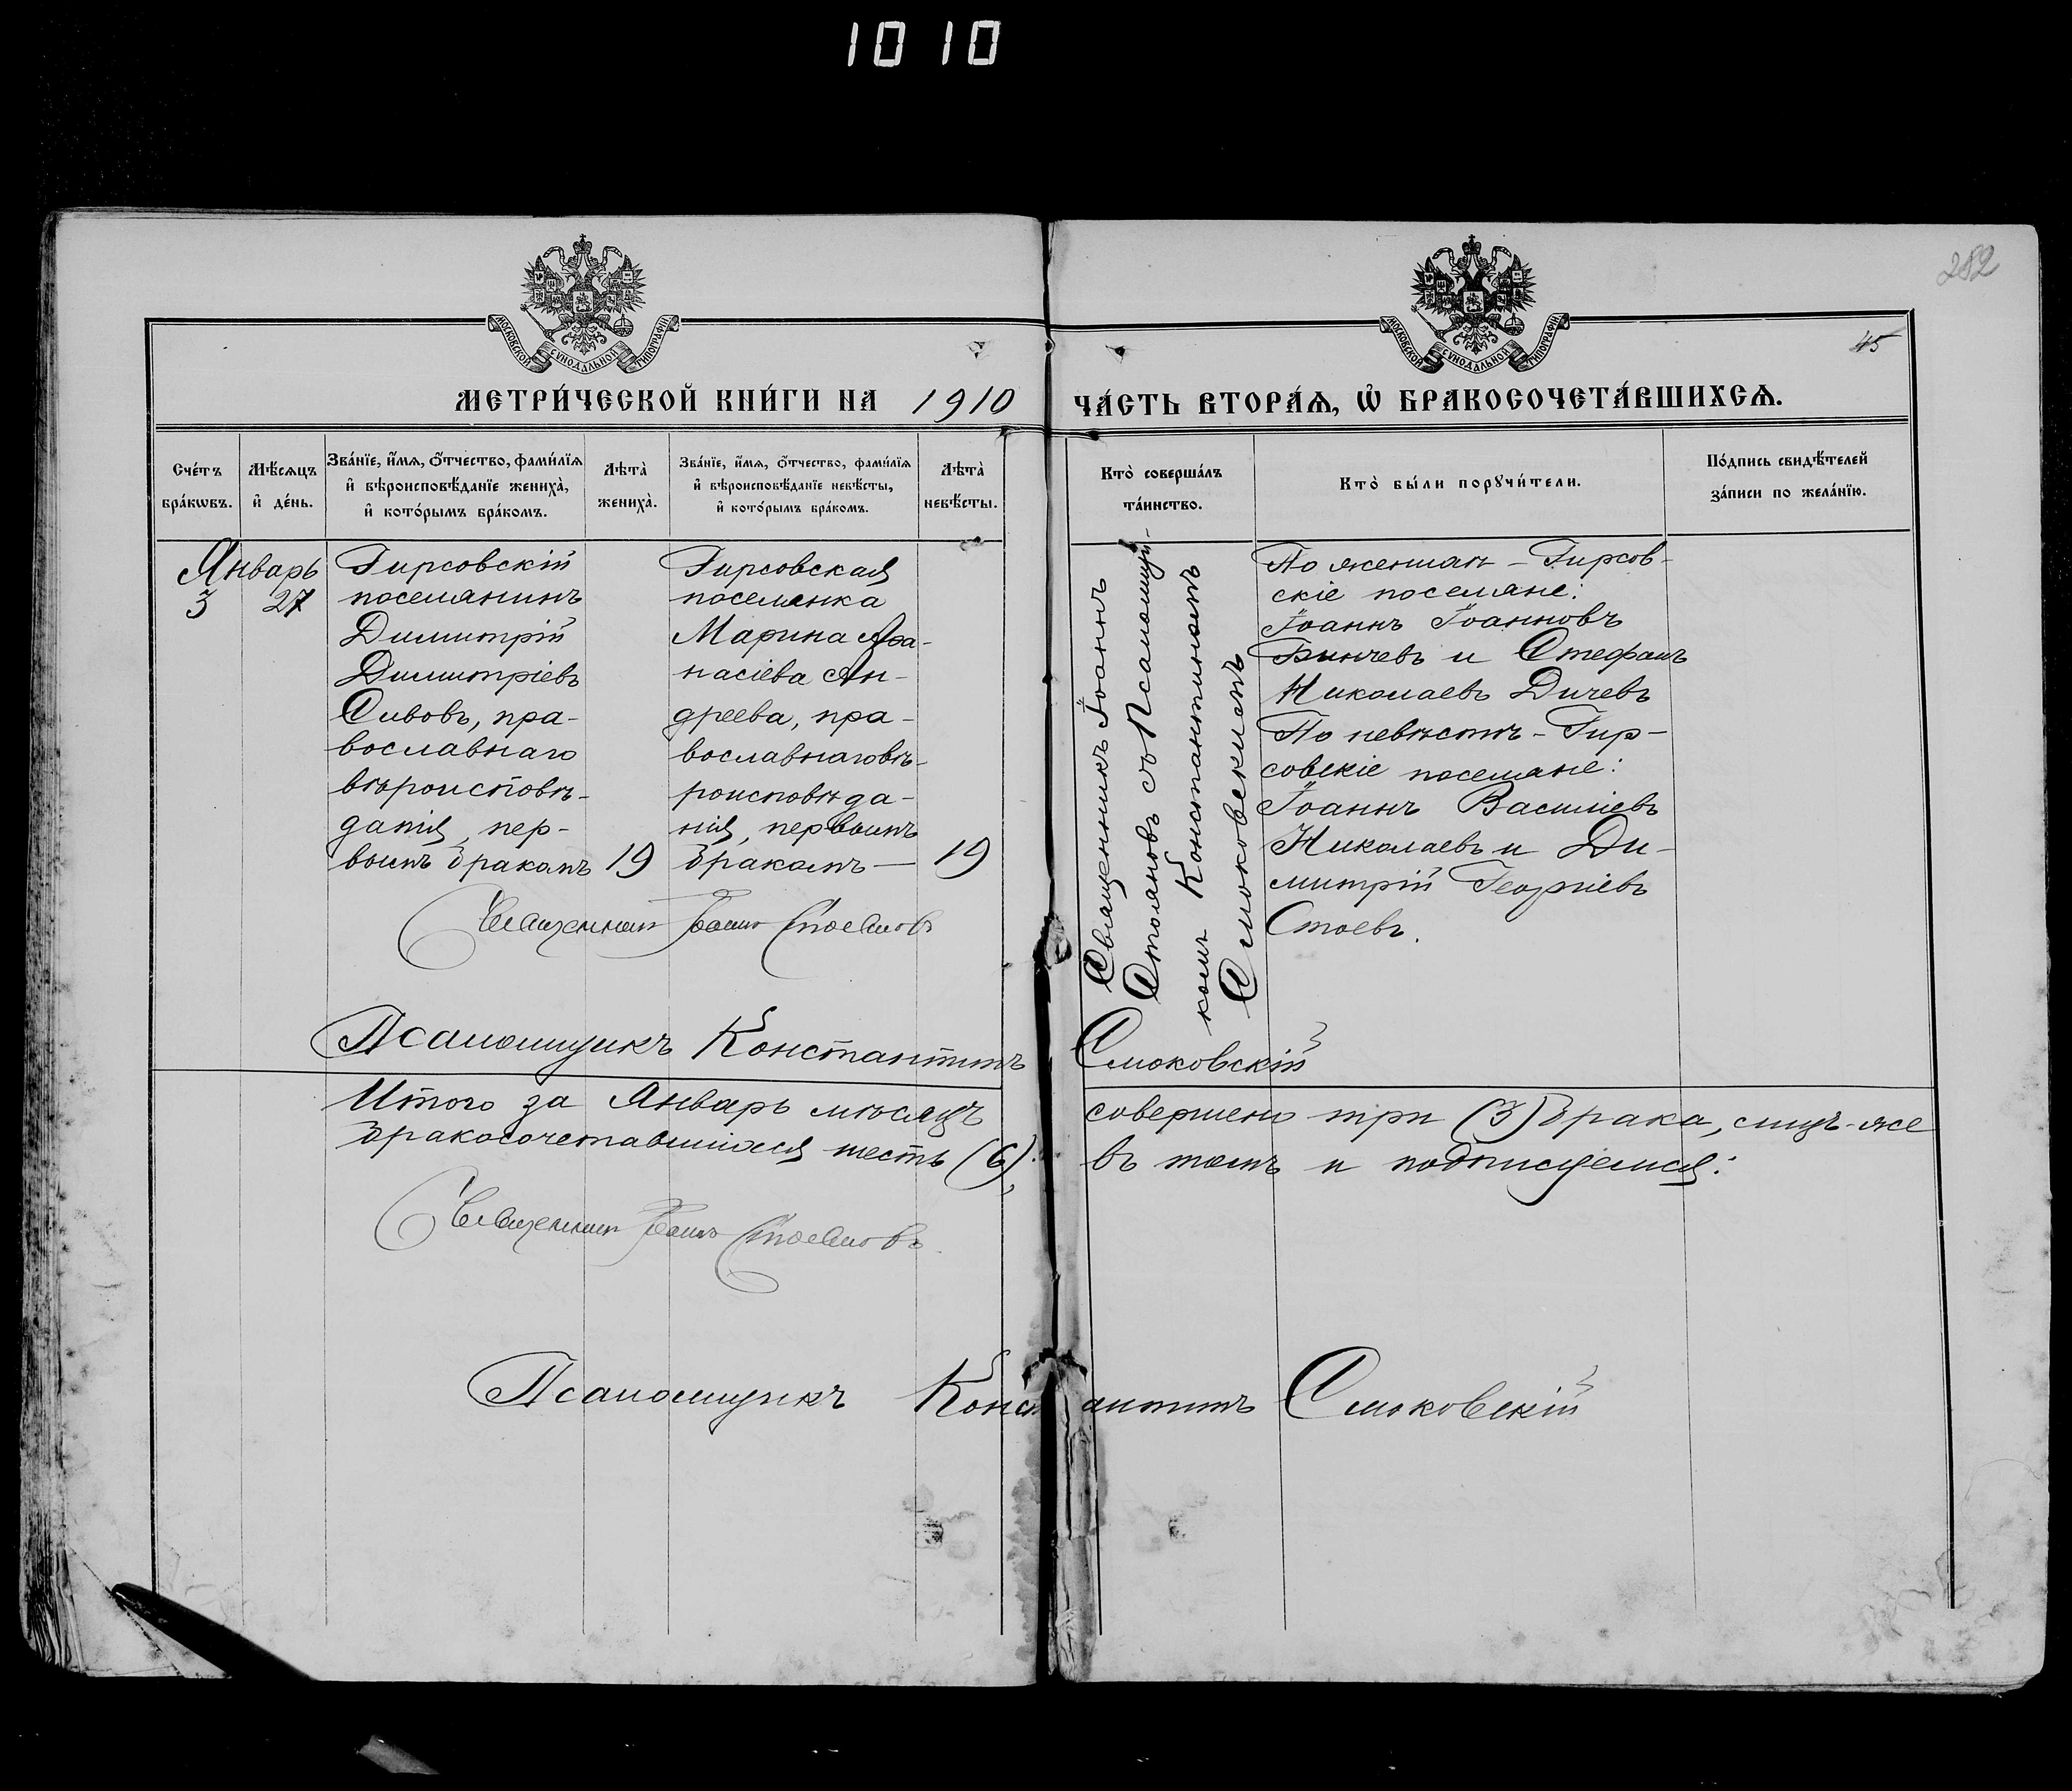 1010
282
45
МОСКОВСКОЙ СѴНОДАЛЬНОЙ ТИПОГРАФІИ
МОСКОВСКОЙ СѴНОДАЛЬНОЙ ТИПОГРАФІИ
МЕТРИ́ЧЕСКОЙ КНИ́ГИ НА 1910
ЧА́СТЬ ВТОРА́Ѧ, Ѽ БРАКОСОЧЕТА́ВШИХСѦ.
Сче́тъ бра́кѡвъ.
Мѣ́сѧцъ и҆ де́нь.
Зва́нїе, и҆́мѧ, ѻ҆́тчество, фами́лїѧ
и҆ вѣроисповѣ́данїе жениха̀,
и҆ кото́рымъ бра́комъ.
Лѣта̀ жениха̀.
Зва́нїе, и҆́мѧ, ѻ҆́тчество, фами́лїѧ
и҆ вѣроисповѣ́данїе невѣ́сты,
и҆ кото́рымъ бра́комъ.
Лѣта̀ невѣ́сты.
Кто̀ соверша́лъ
та́инство.
Кто̀ бы́ли порꙋчи́тели.
По́дпись свидѣ́телей
за́писи по жела́нїю.
Январь
3 27
Гирсовскій
поселянинъ
Димитрій
Димитріевъ
Сивовъ, пра-
вославнаго
вѣроисповѣ-
данія, пер-
вымъ бракомъ 19
Гирсовская
поселянка
Марина Аѳа-
насіева Ан-
дреева, пра-
вославнаго вѣ-
роисповѣда-
нія, первымъ
бракомъ — 19
Священникъ Іоаннъ
Стояновъ съ Псаломщи-
комъ Константиномъ
Смоковскимъ
По женихѣ - Гирсов-
скіе поселяне:
Іоаннъ Іоанновъ
Бинчевъ и Стефанъ
Николаевъ Дичевъ
По невѣстѣ - Гир-
совскіе поселяне:
Іоаннъ Василіевъ
Николаевъ и Ди-
митрій Георгіевъ
Стоевъ.
Священникъ Іоаннъ Стояновъ
Псаломщикъ Константинъ Смоковскій
Итого за Январь мѣсяцъ совершено три (3) брака, лицъ-же
бракосочетавшихся шесть (6), въ томъ и подписуемся:
Священникъ Іоаннъ Стояновъ
Псаломщикъ Константинъ Смоковскій